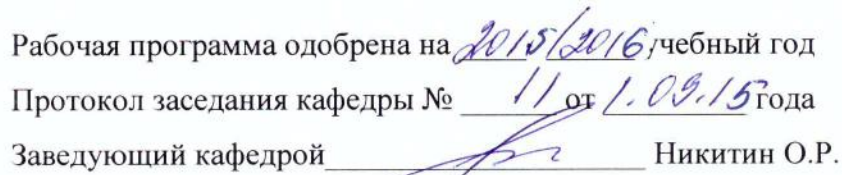 Рабочая программа одобрена на 2015/2016 учебный год
Протокол заседания кафедры № 11 от 1.09.15 года
Заведующий кафедрой Никитин О.Р.